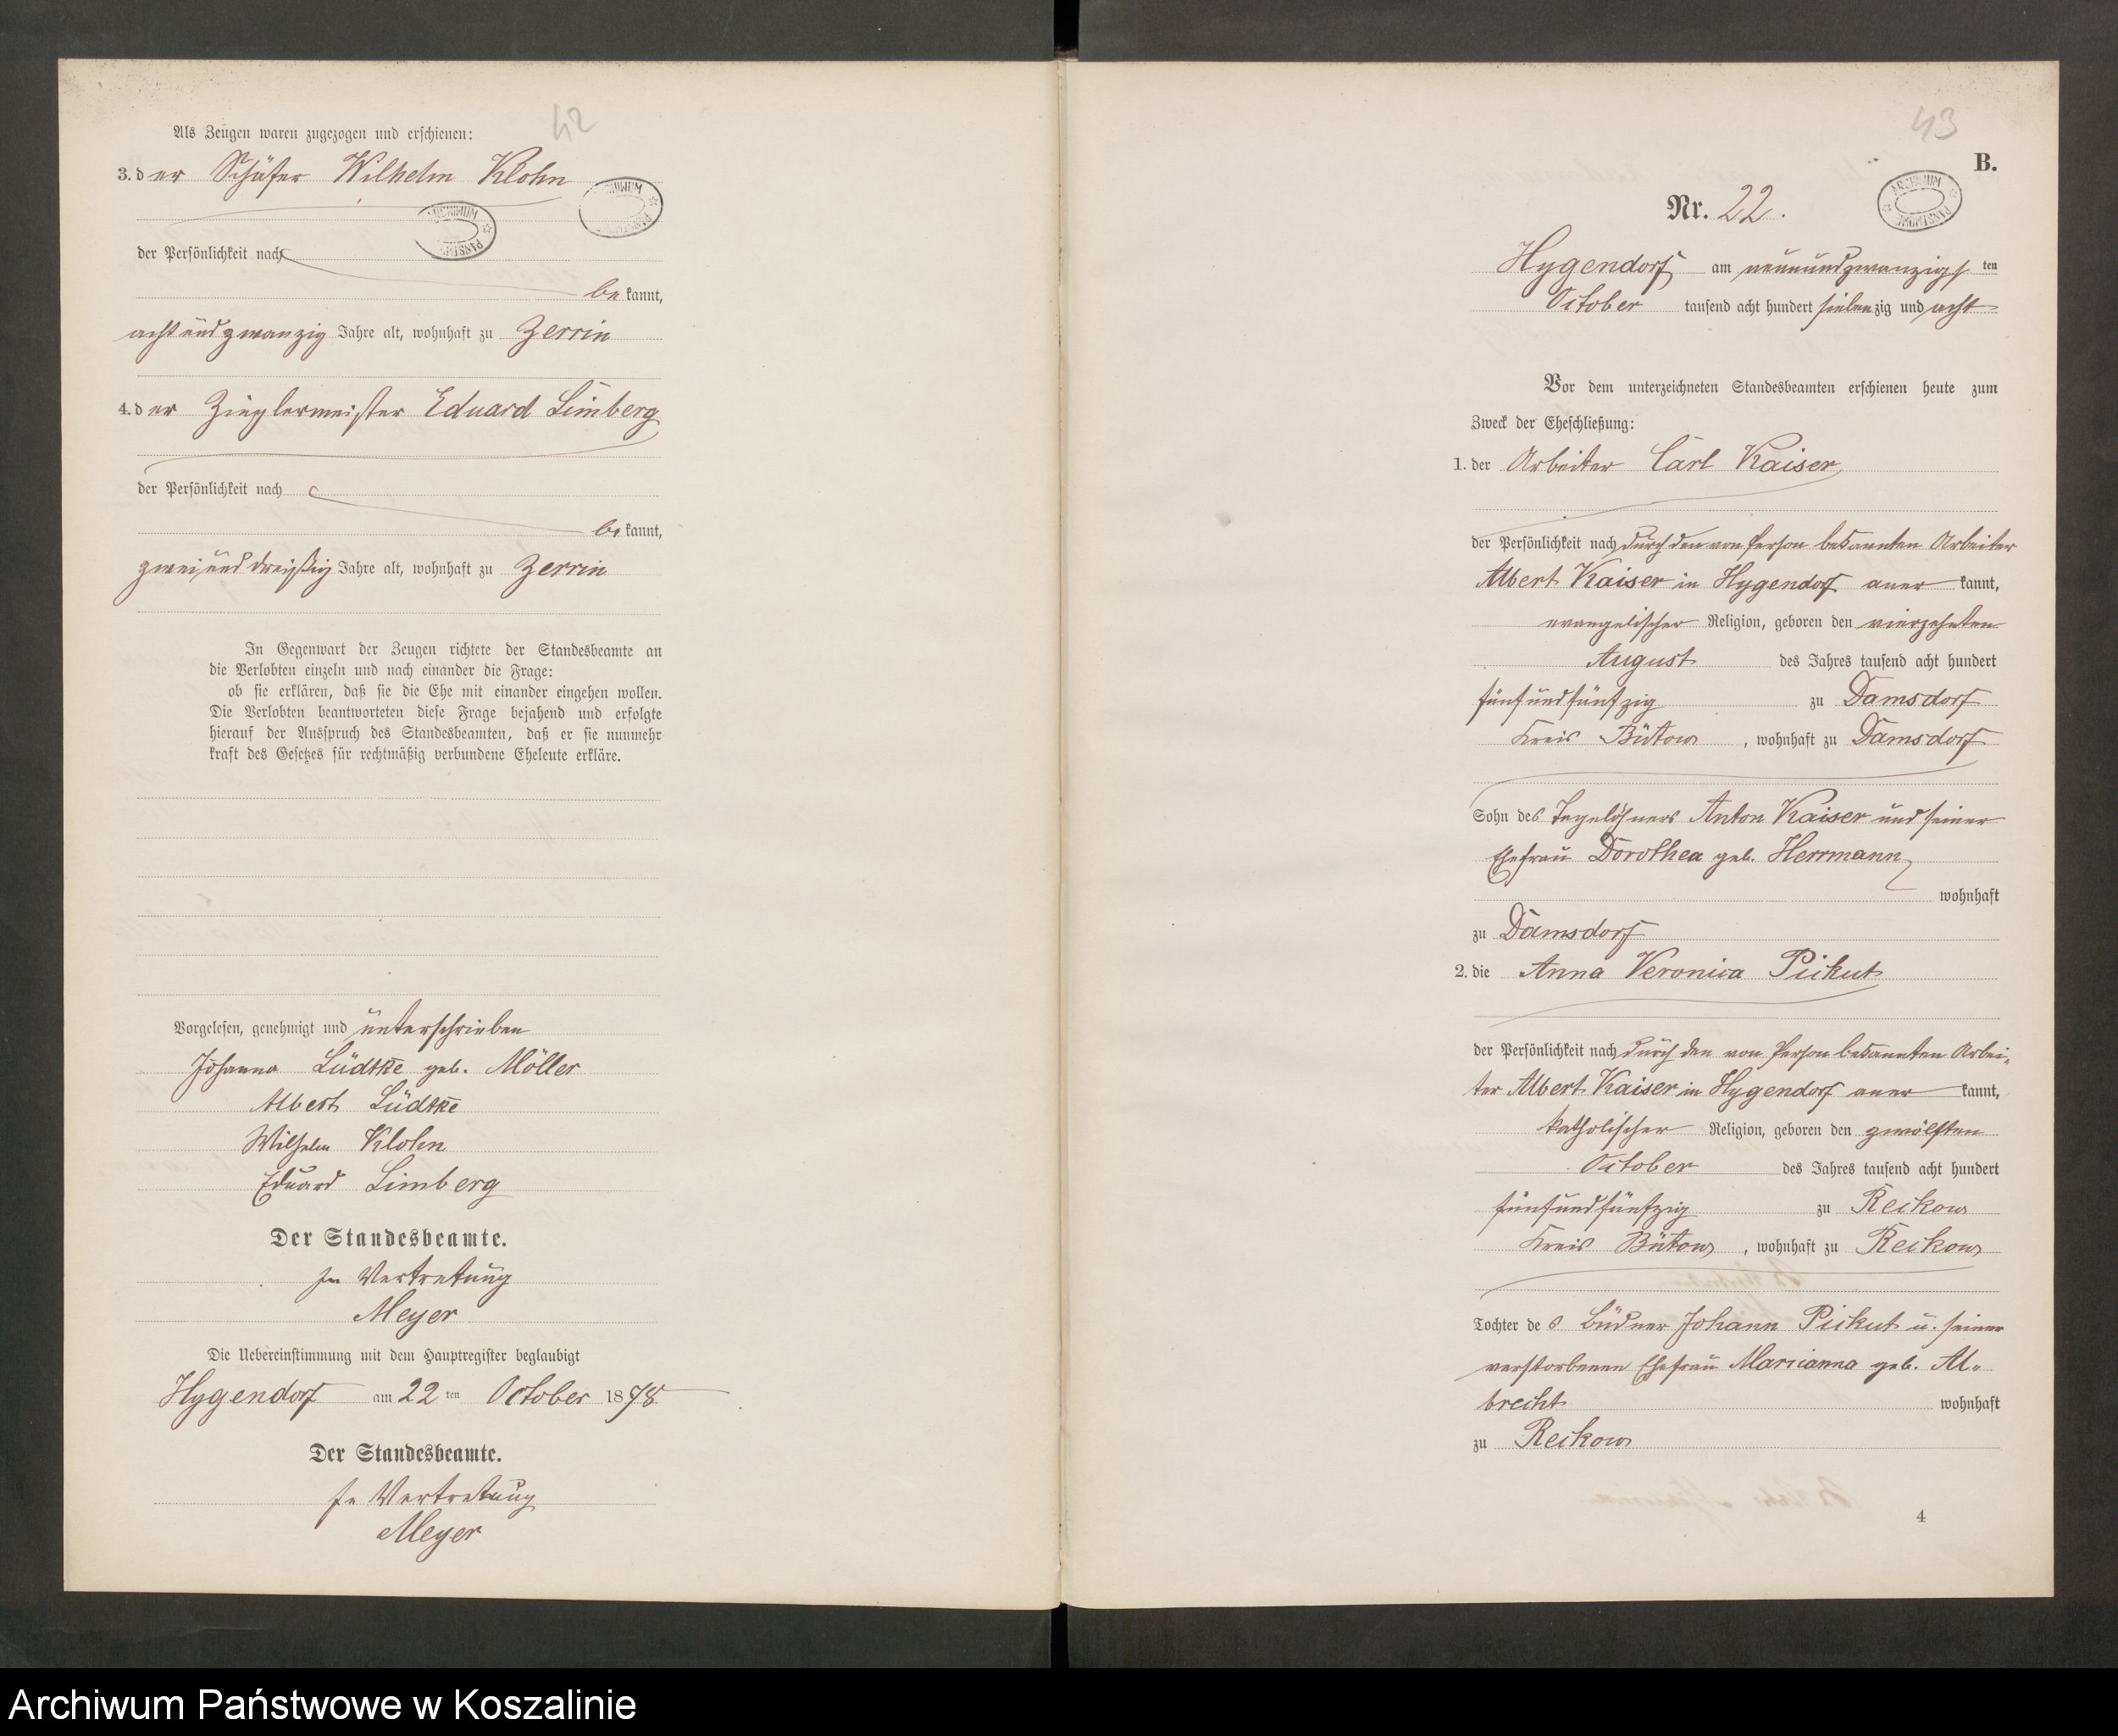 42
Als Zeugen waren zugezogen und erschienen:
3. der Schäfer Wilhelm Klohn
der Persönlichkeit nach
bekannt,
achtundzwanzig Jahre alt, wohnhaft zu Zerrin
4. der Zieglermeister Eduard Limberg
der Persönlichkeit nach
bekannt,
zweiunddreißig Jahre alt, wohnhaft zu Zerrin
In Gegenwart der Zeugen richtete der Standesbeamte an
die Verlobten einzeln und nach einander die Frage:
ob sie erklären, daß sie die Ehe mit einander eingehen wollen.
Die Verlobten beantworteten diese Frage bejahend und erfolgte
hierauf der Ausspruch des Standesbeamten, daß er sie nunmehr
kraft des Gesetzes für rechtmäßig verbundene Eheleute erkläre.
Vorgelesen, genehmigt und unterschrieben
Johanna Lüdtke geb. Möller
Albert Lüdtke
Wilhelm Klohn
Eduard Limberg
Der Standesbeamte.
In Vertretung
Meyer
Die Uebereinstimmung mit dem Hauptregister beglaubigt
Hygendorf am 22ten October 1878
Der Standesbeamte.
In Vertretung
Meyer
43
B.
ARCHIWUM PAŃSTWOWE
Nr. 22.
Hygendorf am neunundzwanzigsten
October tausend acht hundert siebenzig und acht
Vor dem unterzeichneten Standesbeamten erschienen heute zum
Zweck der Eheschließung:
1. der Arbeiter Carl Kaiser
der Persönlichkeit nach durch den von Person bekannten Arbeiter
Albert Kaiser in Hygendorf anerkannt,
evangelischer Religion, geboren den vierzehnten
August des Jahres tausend acht hundert
fünfundfünfzig zu Damsdorf
Kreis Bütow, wohnhaft zu Damsdorf
Sohn des Tagelöhners Anton Kaiser und seiner
Ehefrau Dorothea geb. Herrmann
wohnhaft
zu Damsdorf
2. die Anna Veronica Pickut
der Persönlichkeit nach durch den von Person bekannten Arbei-
ter Albert Kaiser in Hygendorf anerkannt,
katholischer Religion, geboren den zwölften
October des Jahres tausend acht hundert
fünfundfünfzig zu Reckow
Kreis Bütow, wohnhaft zu Reckow
Tochter des Büdner Johann Pickut u. seiner
verstorbenen Ehefrau Marianna geb. Al-
brecht wohnhaft
zu Reckow
4
Archiwum Państwowe w Koszalinie